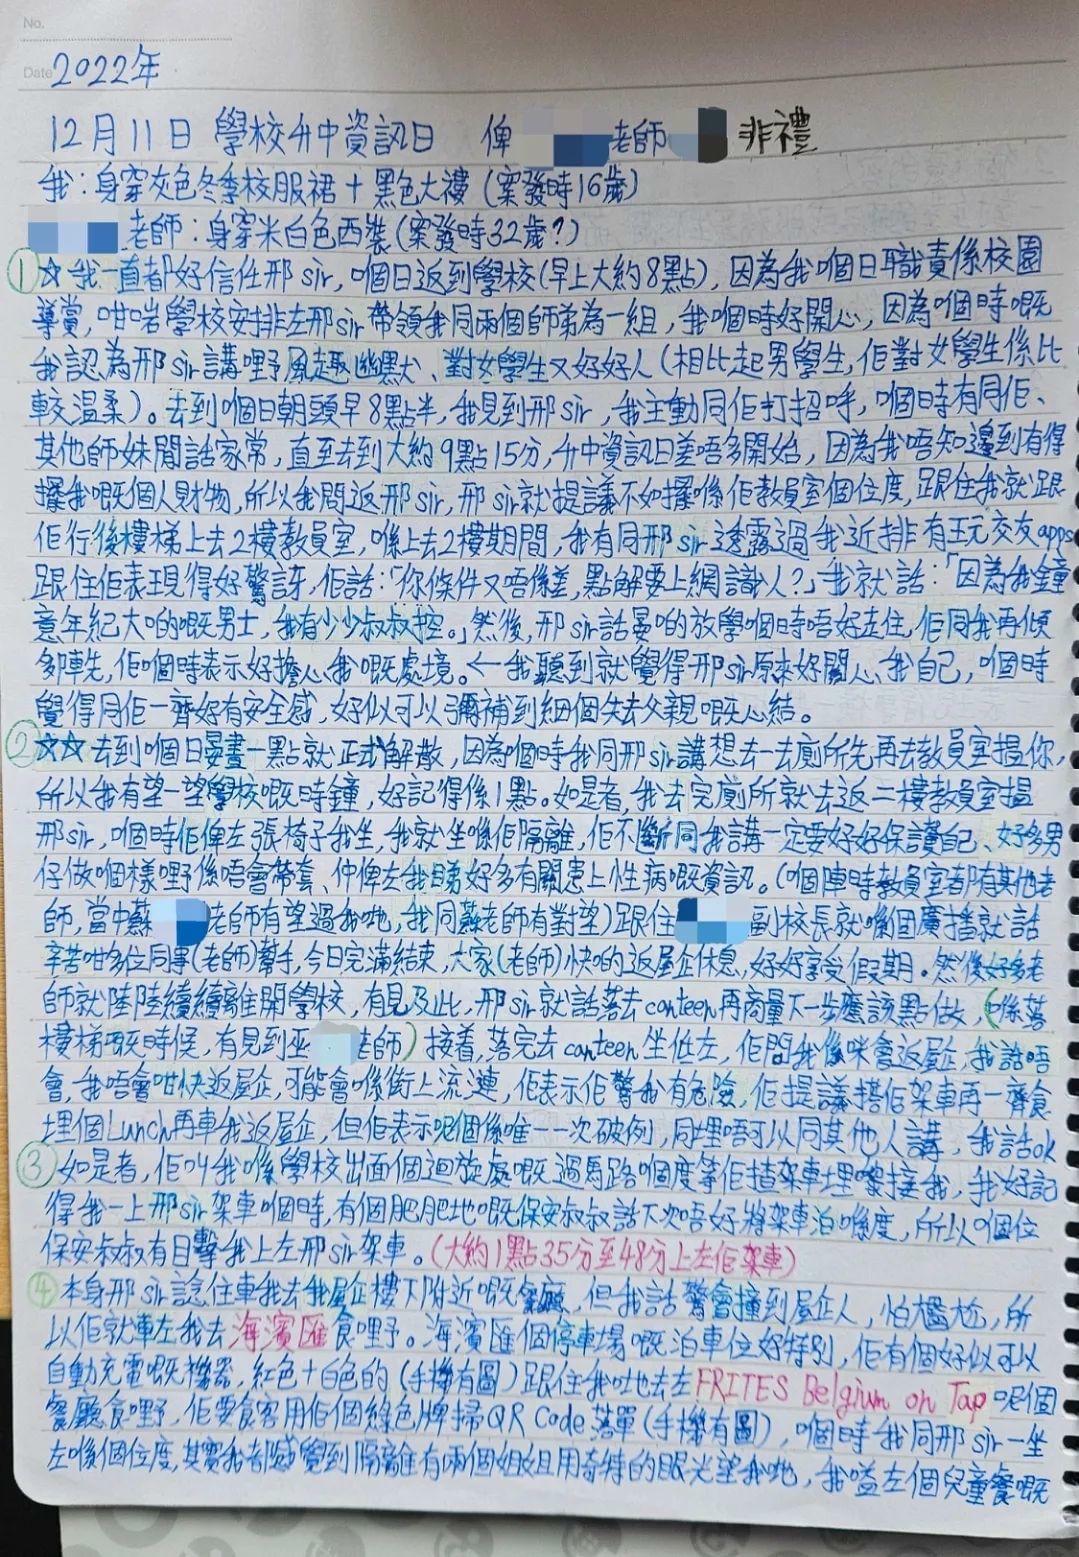 No.
Date 2022年
12月11日 學校升中資訊日 俾 老師 非禮
我：身穿灰色冬季校服裙＋黑色大褸（案發時16歲）
老師：身穿米白色西裝（案發時32歲？）
①☆我一直都好信任邢sir，嗰個日返到學校（早上大約8點），因為我嗰個日職責係校園
導賞，咁啱學校安排左邢sir帶領我同兩個師弟為一組，我嗰個時好開心，因為嗰個時嘅
我認為邢sir講嘢風趣幽默、對女學生又好好人（相比起男學生，佢對女學生係比
較溫柔）。去到嗰個日朝頭早8點半，我見到邢sir，我主動同佢打招呼，嗰個時有同佢、
其他師妹閒話家常，直至去到大約9點15分，升中資訊日差唔多開始，因為我唔知邊到有得
擺我嘅個人財物，所以我問返邢sir，邢sir就提議不如擺喺佢教員室個位度，跟住我就跟
佢行後樓梯上去2樓教員室，喺上去2樓期間，我有同邢sir透露過我近排有玩交友apps
跟住佢表現得好驚訝，佢話：「你條件又唔係差，點解要上網識人？」我就話：「因為我鐘
意年紀大啲嘅男士，我有少少叔叔控。」然後，邢sir話晏啲放學嗰個時唔好走住，佢同我再傾
多陣先，佢嗰個時表示好擔心我嘅處境。←我聽到就覺得邢sir原來好關心我自己，嗰個時
覺得同佢一齊好有安全感，好似可以彌補到細個失去父親嘅心結。
②☆☆去到嗰個日晏晝一點就正式解散，因為嗰個時我同邢sir講想去一去廁所先再去教員室搵你，
所以我有望一望學校嘅時鐘，好記得係1點。如是者，我去完廁所就去返二樓教員室搵
邢sir，嗰個時佢俾左張椅子我坐，我就坐喺佢隔離，佢不斷同我講一定要好好保護自己、好多男
仔做嗰個樣嘢係唔會帶套、仲俾左我睇好多有關患上性病嘅資訊。（嗰個陣時教員室都有其他老
師，當中蘇 老師有望過我哋，我同蘇老師有對望）跟住 副校長就喺個廣播就話
辛苦咁多位同事（老師）幫手，今日完滿結束，大家（老師）快啲返屋企休息，好好享受假期。然後好多老
師就陸陸續續離開學校，有見及此，邢sir就話落去canteen再商量下一步應該點做，（係落
樓梯嘅時候，有見到巫 老師）接着，落完去canteen坐低左，佢問我係咪會返屋企，我話唔
會，我唔會咁快返屋企，可能會喺街上流連，佢表示佢驚我有危險，佢提議搭佢架車再一齊食
埋個Lunch再車我返屋企，但佢表示呢個係唯一一次破例，同埋唔可以同其他人講，我話ok
③如是者，佢叫我喺學校出面個迴旋處嘅過馬路嗰個度等佢揸架車埋嚟接我，我好記
得我一上邢sir架車嗰個時，有個肥肥地嘅保安叔叔話下次唔好將架車泊喺度，所以嗰個位
保安叔叔有目擊我上左邢sir架車。（大約1點35分至48分上左佢架車）
④本身邢sir諗住車我去我屋企樓下附近嘅餐廳，但我話驚會撞到屋企人，怕尷尬，所
以佢就車左我去海濱匯食嘢。海濱匯個停車場嘅泊車位好特別，佢有個好似可以
自動充電嘅機器，紅色＋白色的（手機有圖）跟住我哋去左FRITES Belgium on Tap呢個
餐廳食嘢，佢要食客用佢個綠色牌掃QR Code落單（手機有圖），嗰個時我同邢sir一坐
左喺個位度，其實我都感覺到隔離有兩個姐姐用奇特的眼光望我哋，我嗌左個兒童餐嘅